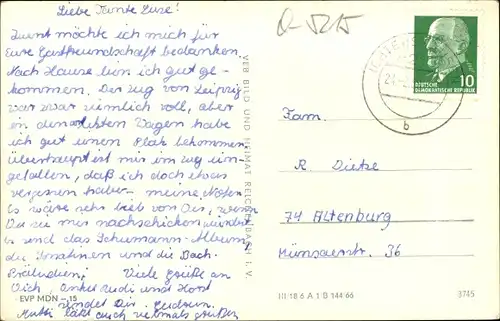 Liebe Tante Luise!
Zuerst möchte ich mich für
Eure Gastfreundschaft bedanken.
Nach Hause bin ich gut ge-
kommen. Der Zug von Leipzig
war zwar ziemlich voll, aber
in den letzten Wagen habe
ich gut einen Platz bekommen.
Überhaupt ist mir im Zug ein-
gefallen, daß ich doch etwas
vergessen habe - meine Noten.
Es wäre sehr lieb von Dir, wenn
Du sie mir nachschicken würdest.
Es sind das Schumann-Album,
die Sonatinen und die Bach-
Präludien! Viele Grüße an
Dich, Onkel Rudi und Horst
sendet Dir
Mutti läßt auch vielmals grüßen
EVP MDN -,15
VEB BILD UND HEIMAT REICHENBACH I. V.
DEUTSCHE
DEMOKRATISCHE REPUBLIK
10
b
Fam.
R. Dietze
74 Altenburg
Münsaerstr. 36
III 18 6 A 1 B 144 66
3745